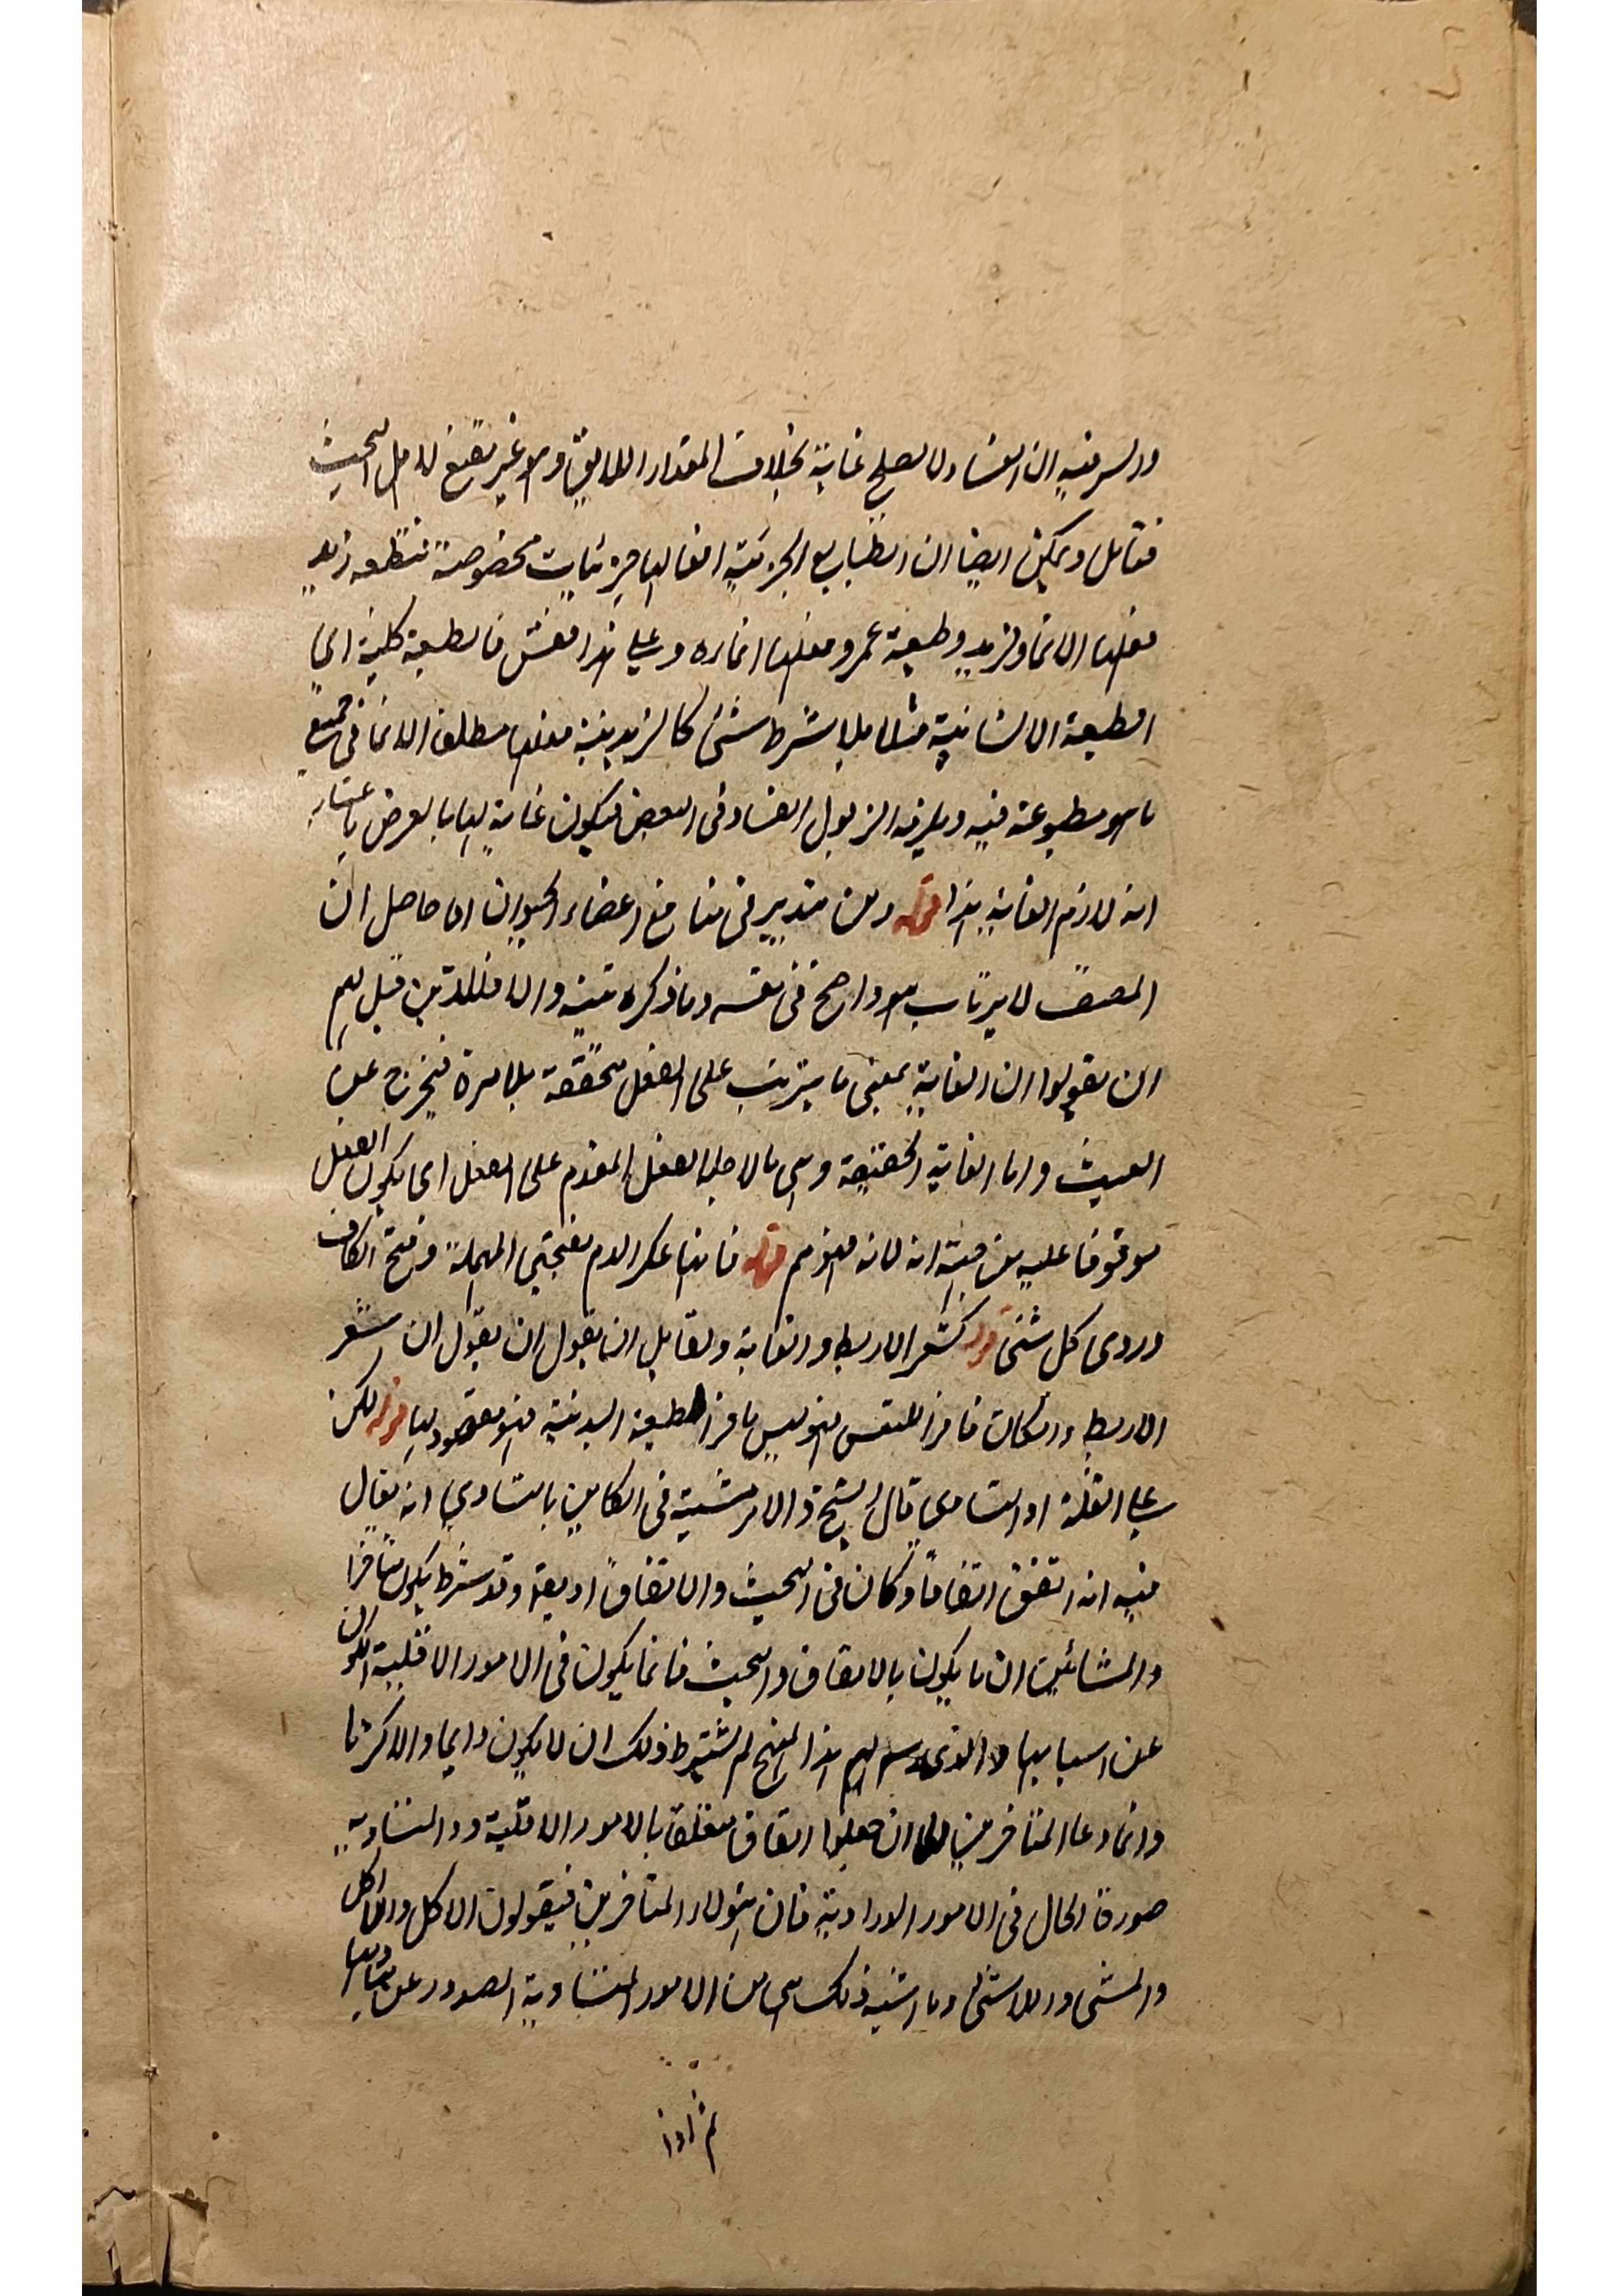 والسر فيه ان الفساد لا يصلح غاية بخلاف المقدار اللايق وهو غير مقنع لاهل البحث
فتامل ويمكن ايضا ان الطبايع الجزئية افعالها جزئيات مخصوصة فطبيعة زيد
فعلها الانماء لزيد وطبيعة عمرو فعلها انماءه وعلى هذا فقس فالطبيعة كلية اي
الطبيعة الانسانية مثلا بلا شرط شئ كالزيدية فعلها مطلق الانماء في جميع
ما هو مطبوعة فيه ويلزمه الذبول الفساد في البعض فيكون غاية لها بالعرض باعتبار
انه لازم الغاية هذا قوله ومن تدبر في منافع اعضاء الحيوان اما حاصل ان
المصنف لا يرتاب هو واضح في نفسه وما ذكره تنبيه والا فللذين قبل لهم
ان يقولوا ان الغاية بمعنى ما يترتب على الفعل متحققة بلا مرة فيخرج عن
العبث واما الغاية الحقيقة وهي ما لاجله الفعل المقدم على الفعل اي يكون الفعل
موقوفا عليه من حيث انه لانه قوله فانها عكر الدم بفتحتي المهملة وفتح الكاف
وردى كل شئ قوله كشعر الابط والعانة ولقايل ان يقول ان يقول ان الشعر
الابط وان كان للنفس فهو ليس الطبيعة البدنية فهو مقصود لها قوله لكن
على القلة او التساوى قال الشيخ في الكاين بالتساوي انه يقال
فيه انه اتفق اتفاقا وكان في البحث والاتفاق او وقد شرط متأخرا
والمشائين ان ما يكون بالاتفاق والبحث فانما يكون في الامور الاقلية الكون
عن اسبابها والذي رسم لهم هذا المنهج لم يشترط ذلك ان لا يكون دايما والاكثر ما
وانما دعا المتأخرين الى ان جعلوا اتفاق متعلقا بالامور الاقلية دون المتساوية
صورة الحال في الامور الارادية فان هؤلاء المتأخرين فيقولون الاكل واللااكل
والمشى واللامشى وما اشبه ذلك هي من الامور المتساوية الصدور عن مباديها